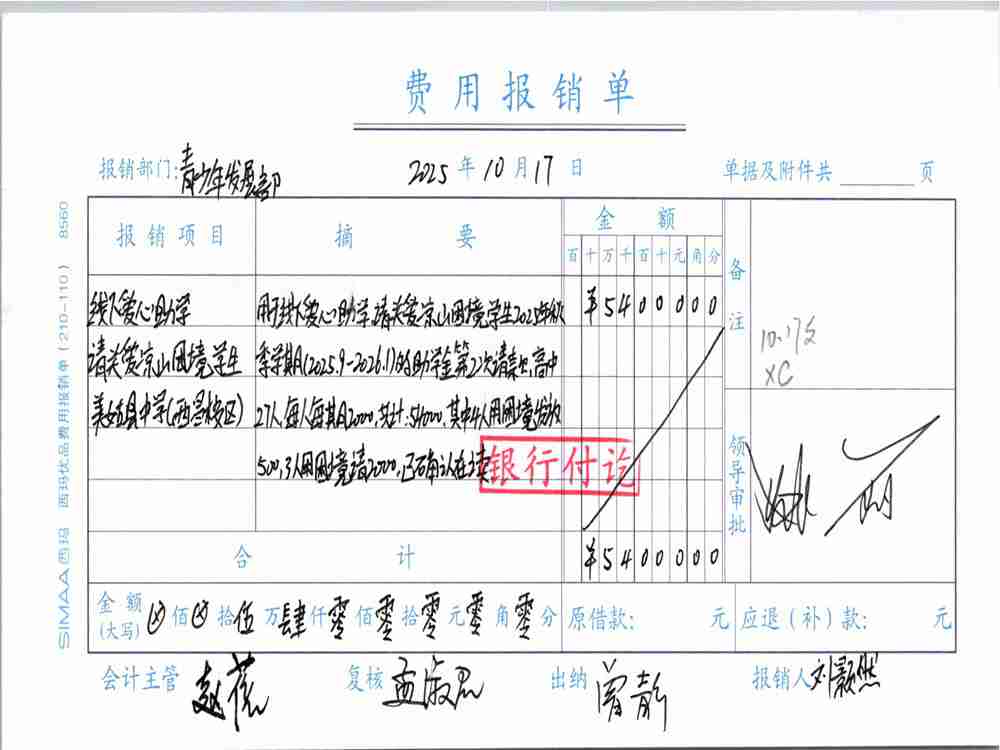 费用报销单
报销部门:青少年发展部 2025年10月17日 单据及附件共 页
报销项目 摘要 金额 备注
百十万千百十元角分
线下爱心助学 用于线下爱心助学,情关爱凉山困境学生2025年秋 ¥5400000
情关爱凉山困境学生 季学期(2025.9-2026.1)的助学金第2次请款,高中
美姑县中学(西昌校区) 27人,每人每期2000,共计:54000,其中4人用困境
500,3人用困境 2000,已确认在读
银行付讫
10.17
XC
领导审批
合计 ¥5400000
金额(大写) 佰 拾伍万肆仟零佰零拾零元零角零分 原借款: 元 应退(补)款: 元
会计主管 赵 复核 孟淑 出纳 曾静 报销人 刘颢然
SIMAA西玛 西玛优品费用报销单(210-110) 8560